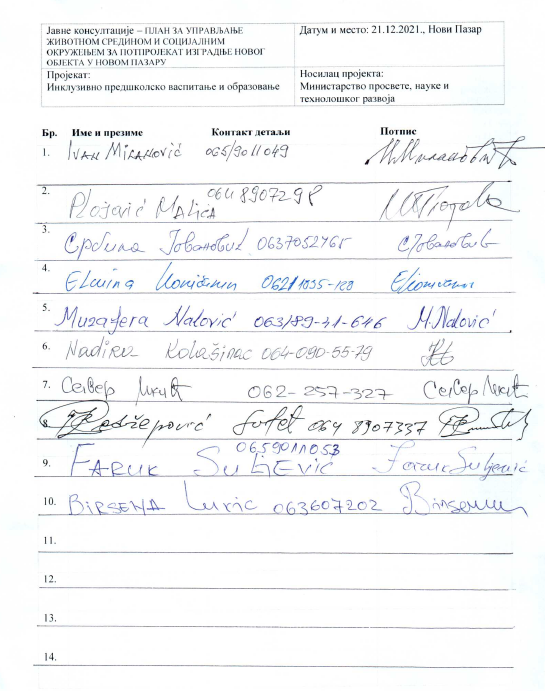 Јавне консултације – ПЛАН ЗА УПРАВЉАЊЕ
ЖИВОТНОМ СРЕДИНОМ И СОЦИЈАЛНИМ
ОКРУЖЕЊЕМ ЗА ПОТПРОЈЕКАТ ИЗГРАДЊЕ НОВОГ
ОБЈЕКТА У НОВОМ ПАЗАРУ
Датум и место: 21.12.2021., Нови Пазар
Пројекат:
Инклузивно предшколско васпитање и образовање
Носилац пројекта:
Министарство просвете, науке и
технолошког развоја
Бр. Име и презиме Контакт детаљи Потпис
1. IVAN MILANOVIĆ 065/9011049
2. 064 8907298
3. Србина Јовановић
4. Elmina
5. Muzafera Nalović 063/89-41-646 M. Nalović
6. Nadira Kolašinac 064-090-55-79
7. Сеивер 062-257-327 Сеивер
8. Redžepović 064 8907337
9. FARUK SULJEVIĆ 0659011053 Faruk Suljević
10. BIRSENA 063607202
11.
12.
13.
14.